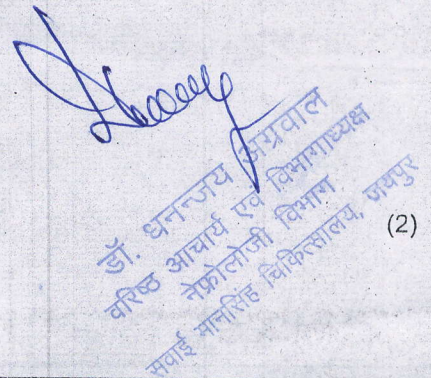 डॉ. धनन्जय अग्रवाल
वरिष्ठ आचार्य एवं विभागाध्यक्ष
नेफ्रोलोजी विभाग
सवाई मानसिंह चिकित्सालय, जयपुर
(2)